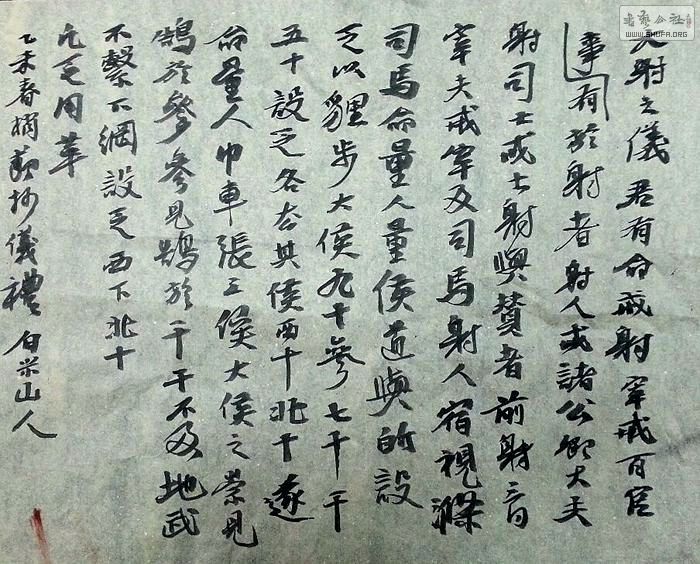 大射之儀君有命戒射宰戒百官
事有於射者射人戒諸公卿大夫
射司士戒士射與贊者前射三日
宰夫戒宰及司馬射人宿視滌
司馬命量人量侯道與所設
乏以貍步大侯九十參七十干
五十設乏各去其侯西十北十遂
命量人巾車張三侯大侯之崇見
鵠於參參見鵠於干干不及地武
不繫下綱設乏西下北十
凡乏用革
乙未春摘抄儀禮 白米山人
書藝公社
WWW.SHUFA.ORG